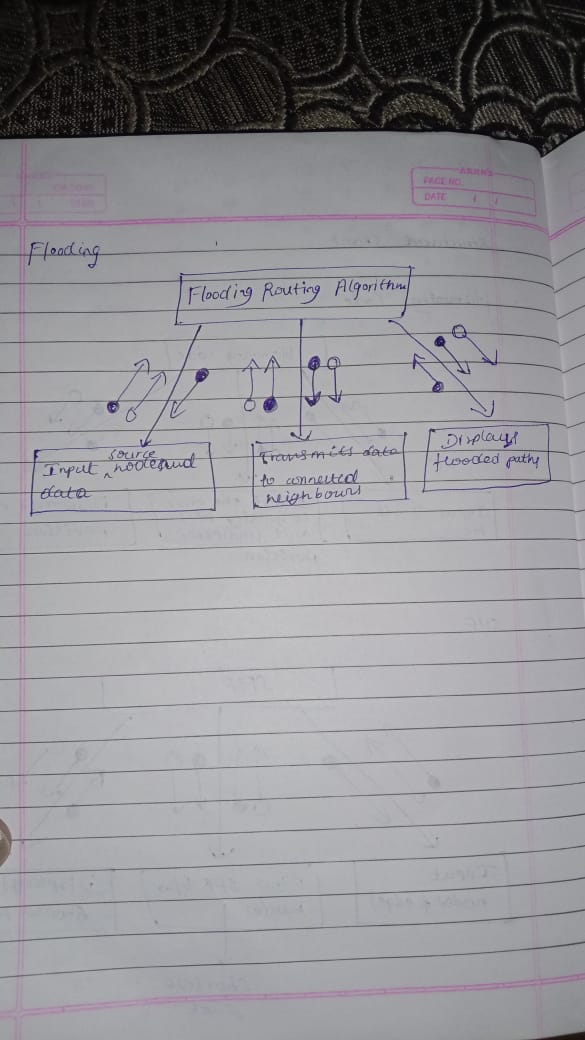 PAGE NO.
DATE / /
Flooding
Flooding Routing Algorithm
source
Input ^ node and
data
Transmits data
to connected
neighbours
Displays
flooded paths